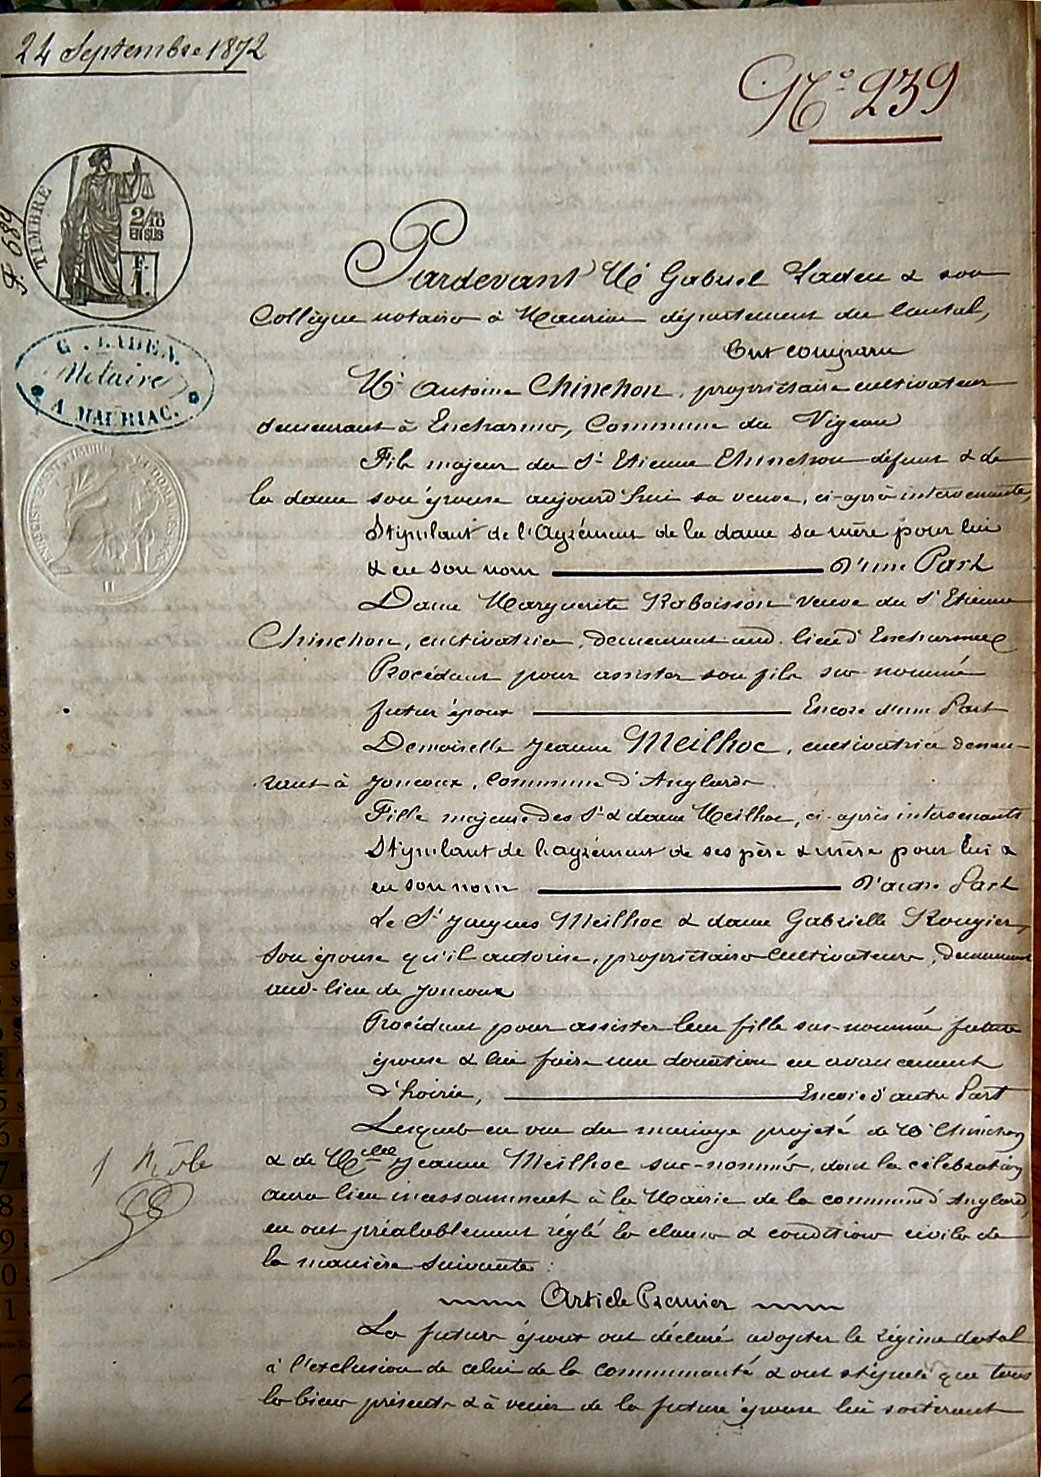 24 Septembre 1872
N° 239
TIMBRE
2/10
EN SUS
F.
1.
F. 689
Pardevant Me Gabriel Laden & son
Collègue notaires à Mauriac département du Cantal,
Ont comparu
Mr Antoine Chinchon, propriétaire cultivateur
demeurant à Encharmes, Commune du Vigean
Fils majeur du Sr Etienne Chinchon défunt & de
la dame son épouse aujourd'hui sa veuve, ci-après intervenante,
Stipulant de l'Agrément de la dame sa mère pour lui
& en son nom D'une Part
Dame Marguerite Raboisson veuve du Sr Etienne
Chinchon, cultivatrice, demeurant aud. lieu d'
Procédant pour assister son fils sus-nommé
futur époux Encore d'une Part
Demoiselle Jeanne Meilhoc, cultivatrice demeu-
rant à Joncoux, Commune d'Anglards
Fille majeure des Sr & dame Meilhoc, ci-après intervenants
Stipulant de l'agrément de ses père & mère pour lui &
en son nom D'autre Part
Le Sr Jacques Meilhoc & dame Gabrielle Rougier,
Son épouse qu'il autorise, propriétaires Cultivateurs, demeurant
aud. lieu de Joncoux
Procédant pour assister leur fille sus-nommée future
épouse & lui faire une donation en avancement
d'hoirie, Encore d'autre Part
Lesquels en vue du mariage projeté de Mr Chinchon
& de Melle Jeanne Meilhoc sus-nommés, dont la célébration
aura lieu incessamment à la Mairie de la commune d'Anglards,
en ont préalablement réglé les clauses & conditions civiles de
la manière suivante :
Article Premier
Les futurs époux ont déclaré adopter le régime dotal
à l'exclusion de celui de la communauté & ont stipulé que tous
les biens présents & à venir de la future épouse lui sortiront
G. LADEN
Notaire
A MAURIAC.
1 Rôle